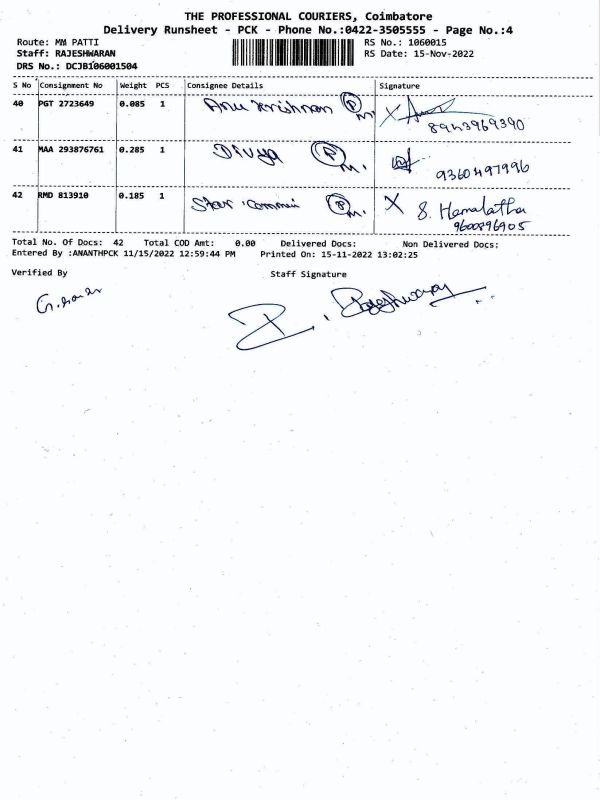 THE PROFESSIONAL COURIERS, Coimbatore
Delivery Runsheet - PCK - Phone No.:0422-3505555 - Page No.:4
Route: MM PATTI RS No.: 1060015
Staff: RAJESHWARAN RS Date: 15-Nov-2022
DRS No.: DCJB106001504
S No Consignment No Weight PCS Consignee Details Signature
40 PGT 2723649 0.085 1 P M.
8943969390
41 MAA 293876761 0.285 1 Divya P M.
9360497996
42 RMD 813910 0.185 1 Star P M. X S. Hemalatha
9600896905
Total No. Of Docs: 42 Total COD Amt: 0.00 Delivered Docs: Non Delivered Docs:
Entered By :ANANTHPCK 11/15/2022 12:59:44 PM Printed On: 15-11-2022 13:02:25
Verified By Staff Signature